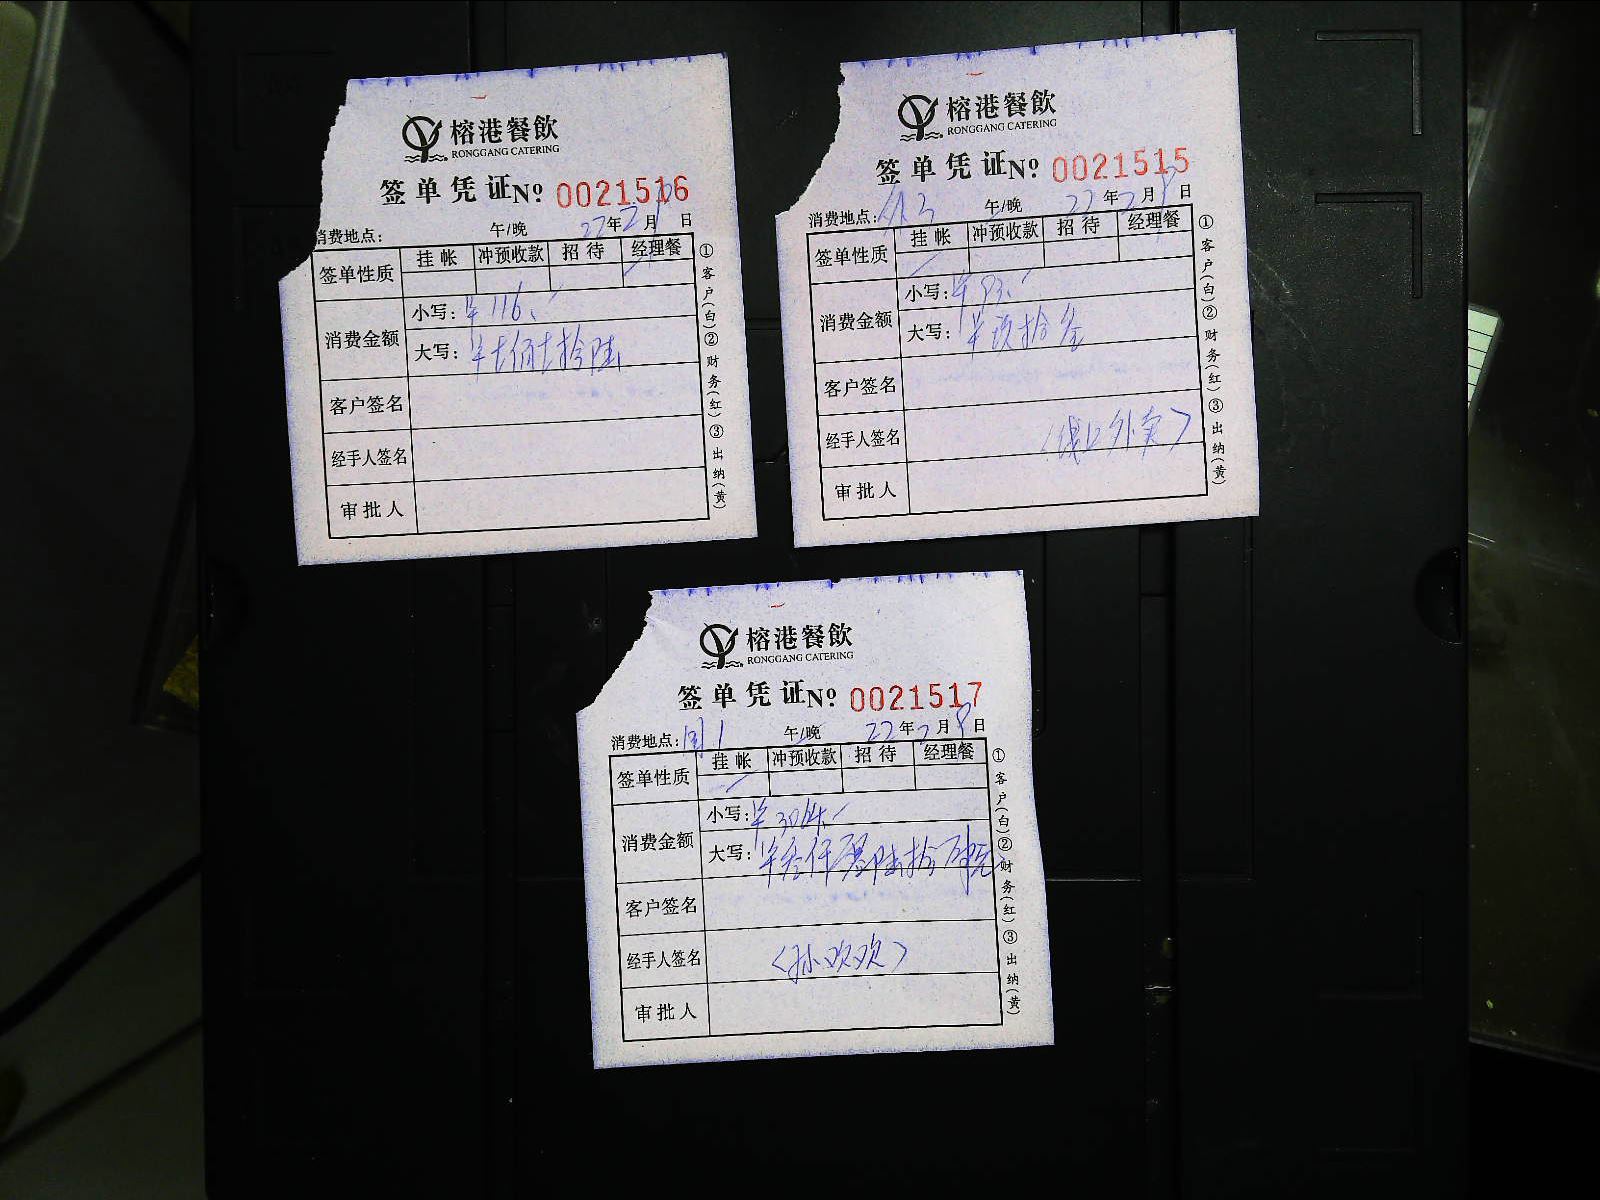 榕港餐飲
RONGGANG CATERING
签单凭证 Nº 0021516
消费地点: 午/晚 22年2月8日
签单性质 挂帐 冲预收款 招待 经理餐
消费金额 小写: ¥116.
大写:
客户签名
经手人签名
审批人
①客户(白)②财务(红)③出纳(黄)
榕港餐飲
RONGGANG CATERING
签单凭证 Nº 0021515
消费地点: 午/晚 22年2月8日
签单性质 挂帐 冲预收款 招待 经理餐
消费金额 小写: ¥93.
大写:
客户签名
经手人签名 (线上外卖)
审批人
①客户(白)②财务(红)③出纳(黄)
榕港餐飲
RONGGANG CATERING
签单凭证 Nº 0021517
消费地点: 午/晚 22年2月8日
签单性质 挂帐 冲预收款 招待 经理餐
消费金额 小写:
大写:
客户签名
经手人签名 (孙欢欢)
审批人
①客户(白)②财务(红)③出纳(黄)